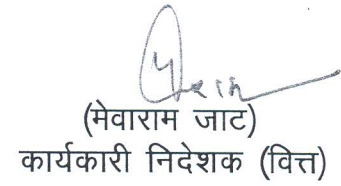 (मेवाराम जाट)
कार्यकारी निदेशक (वित्त)